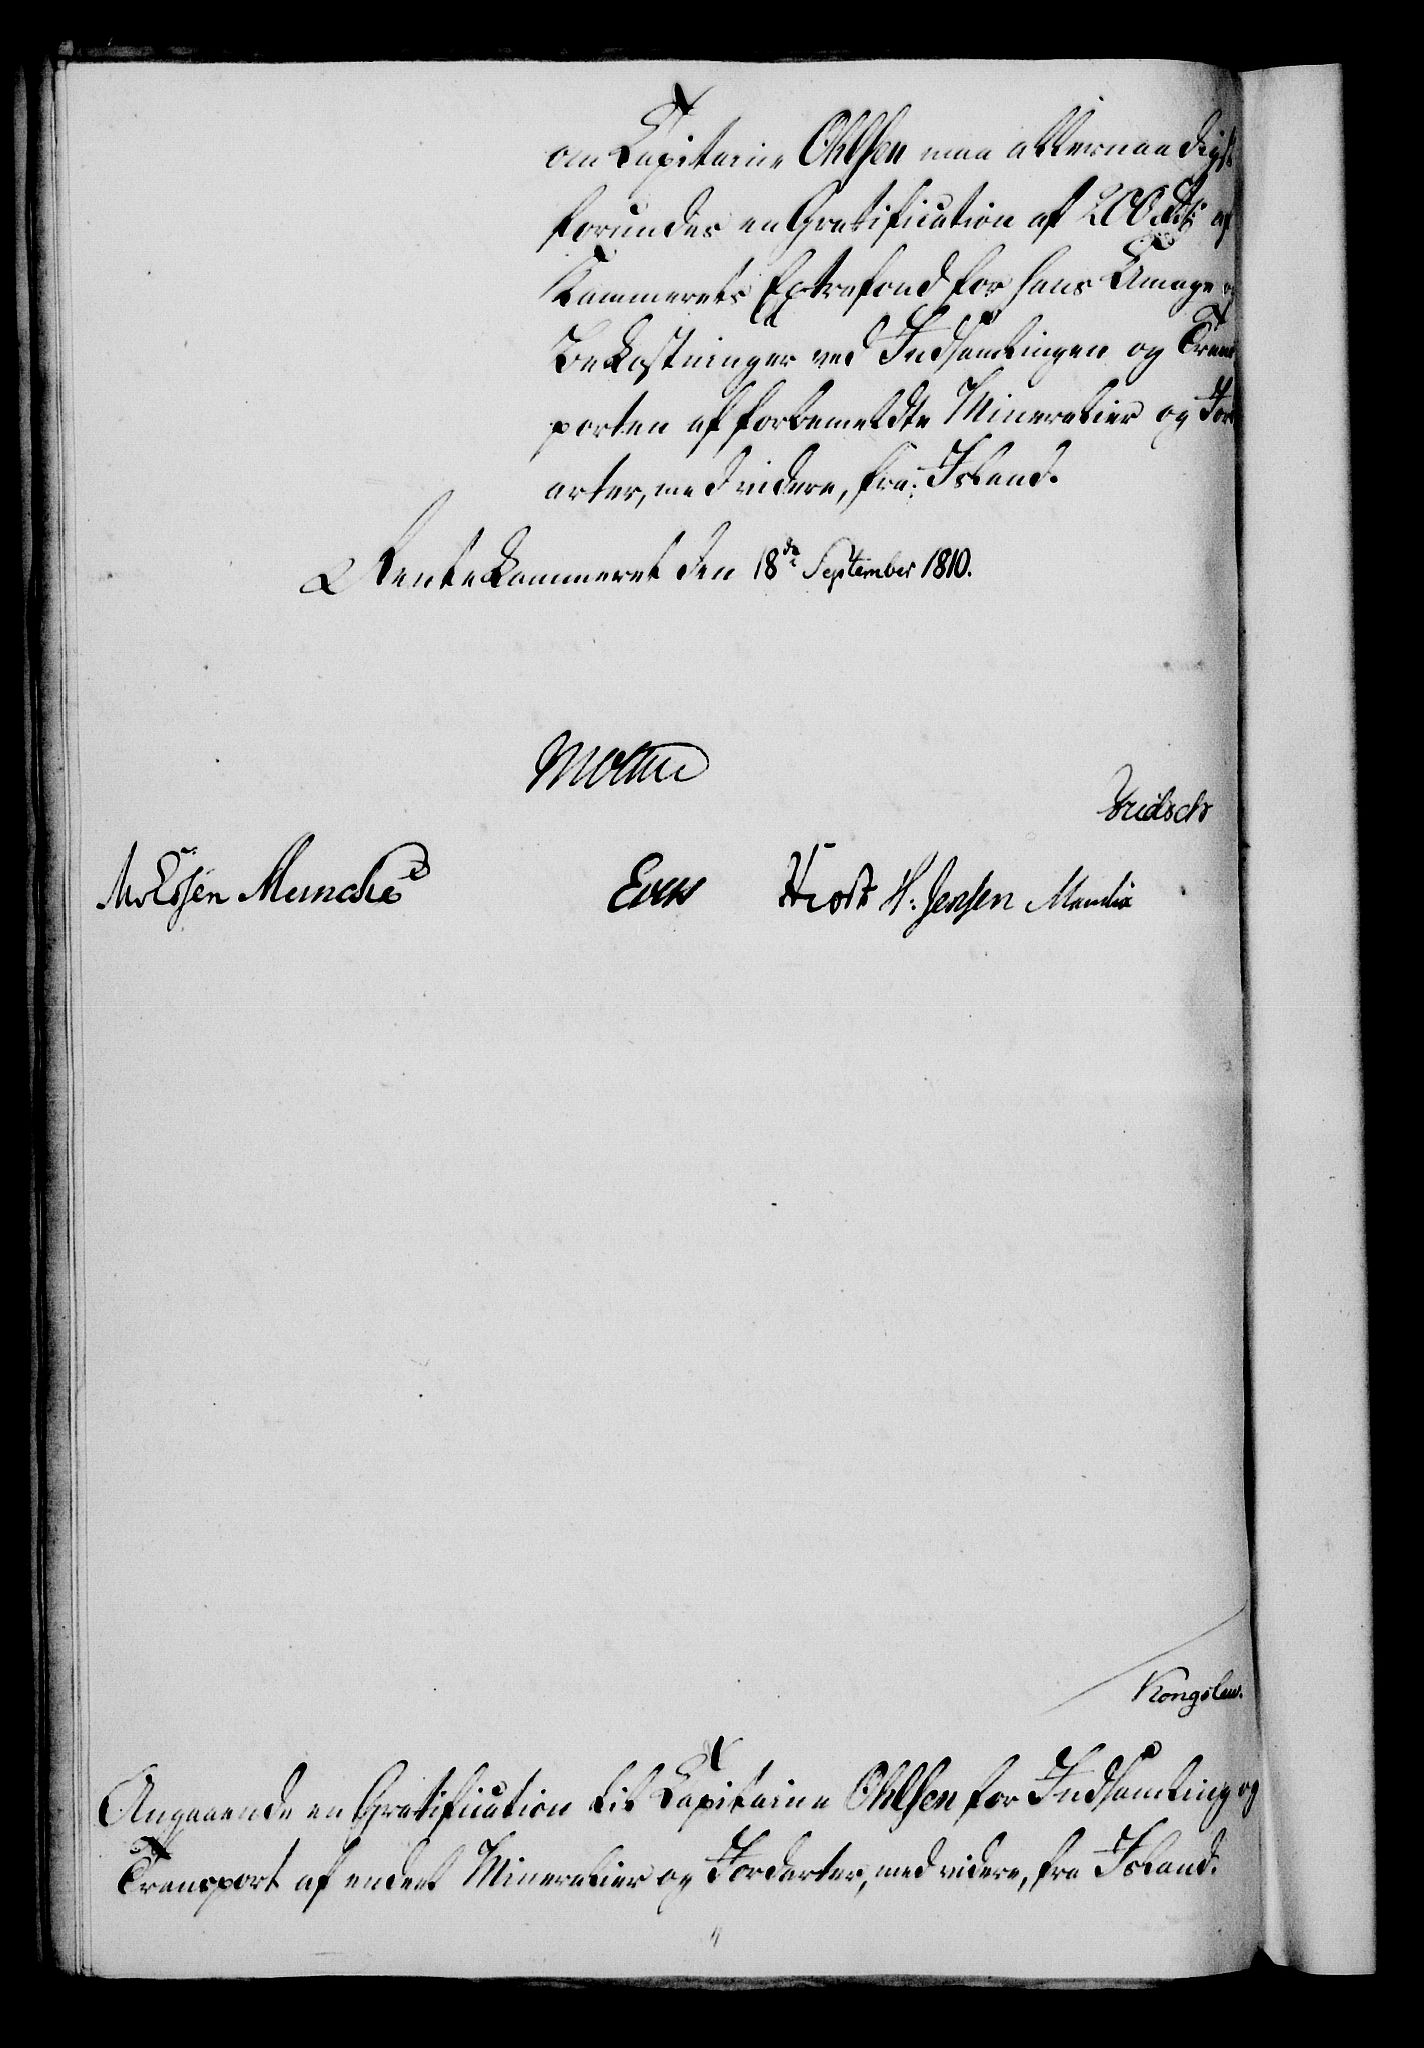 om Capitaine Ohlsen maa allernaadigst
forundes en Gratification af 200 Rd. af
Kammerets Extrafond for hans Umage og
Bekostninger ved Indsamlingen og Trans
porten af forbemeldte Mineralier og Jord
arter, med videre, fra Island.
Rentekammeret den 18de September 1810.
Moltke
Fridsch
Monrad
Knudsen
Hiort H: Jensen
Kongslew.
Angaaende en Gratification til Capitaine Ohlsen for Indsamling og
Transport af endeel Mineralier og Jordarter, med videre, fra Island.